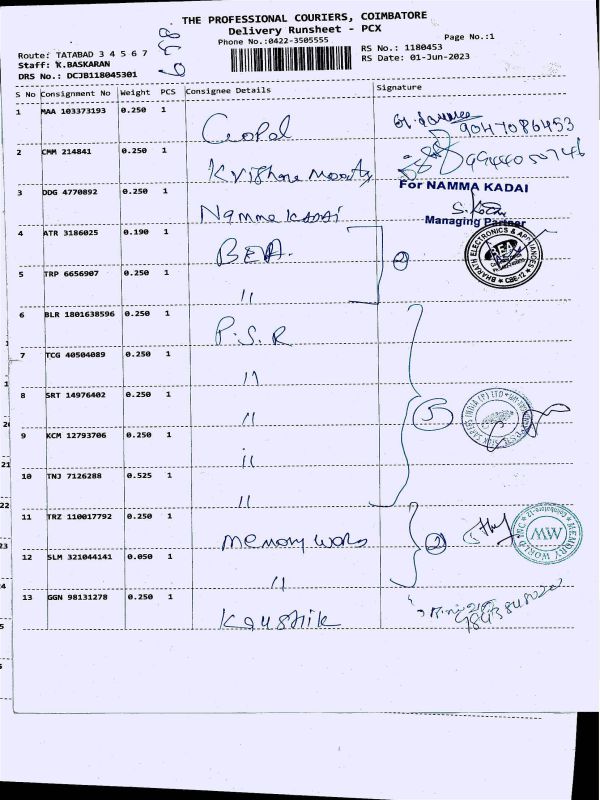 THE PROFESSIONAL COURIERS, COIMBATORE
Delivery Runsheet - PCX
Phone No.:0422-3505555
Page No.:1
Route: TATABAD 3 4 5 6 7
RS No.: 1180453
Staff: K.BASKARAN
RS Date: 01-Jun-2023
DRS No.: DCJB118045301
S No Consignment No Weight PCS Consignee Details Signature
1 MAA 103373193 0.250 1 Gopal 9047086453
2 CMM 214841 0.250 1 Krishna Moorthy 9944050746
3 DDG 4770892 0.250 1 Namma Kadai
For NAMMA KADAI
Managing Partner
4 ATR 3186025 0.190 1 BEA.
2
BHARATH ELECTRONICS & APPLIANCES
BEA
CBE-12
5 TRP 6656907 0.250 1 "
6 BLR 1801638596 0.250 1 P.S.R
7 TCG 40504089 0.250 1 "
8 SRT 14976402 0.250 1 "
5
9 KCM 12793706 0.250 1 "
10 TNJ 7126288 0.525 1 "
11 TRZ 110017792 0.250 1 Memory World
2
MEMORY WORLD INC
Coimbatore-12
MW
12 SLM 321044141 0.050 1 "
13 GGN 98131278 0.250 1 Kaushik